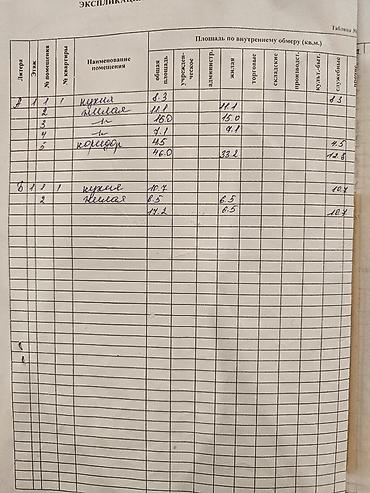 ЭКСПЛИКАЦИ
Таблица №
Литера
Этаж
№ помещения
№ квартиры
Наименование помещения
Площадь по внутреннему обмеру (кв.м.)
общая площадь
учрежден-ческое
администр.
жилая
торговые
складские
производст.
культ-быт
служебные
А 1 1 1 кухня 8.3 8.3
2 жилая 11.1 11.1
3 -"- 15.0 15.0
4 -"- 7.1 7.1
5 коридор 4.5 4.5
46.0 33.2 12.8
Б 1 1 1 кухня 10.7 10.7
2 жилая 6.5 6.5
17.2 6.5 10.7